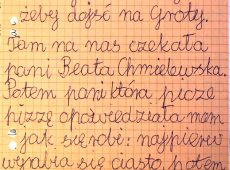 żeby dojść na Groty.
Tam na nas czekała
pani Beata Chmielewska.
Potem pani która piecze
pizzę opowiedziała nam
jak się robi: najpierw
wyrabia się ciasto, potem